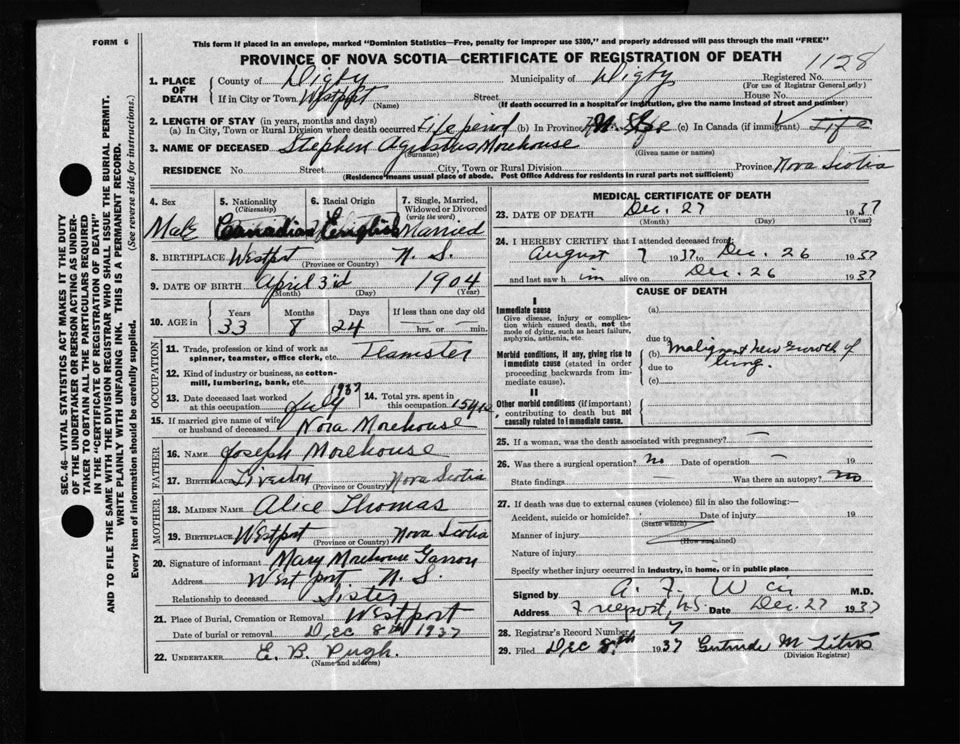 FORM 6
This form if placed in an envelope, marked "Dominion Statistics—Free, penalty for improper use $300," and properly addressed will pass through the mail "FREE"
PROVINCE OF NOVA SCOTIA—CERTIFICATE OF REGISTRATION OF DEATH
1128
1. PLACE OF DEATH { County of Digby Municipality of Digby Registered No.
(For use of Registrar General only)
If in City or Town Westport Street House No.
(Name) (If death occurred in a hospital or institution, give the name instead of street and number)
2. LENGTH OF STAY (in years, months and days)
(a) In City, Town or Rural Division where death occurred Life period (b) In Province (c) In Canada (if immigrant) Life
3. NAME OF DECEASED Stephen Agustus Morehouse
(Surname) (Given name or names)
RESIDENCE No. Street City, Town or Rural Division Province Nova Scotia
(Residence means usual place of abode. Post Office Address for residents in rural parts not sufficient)
4. Sex Male
5. Nationality (Citizenship) Canadian
6. Racial Origin English
7. Single, Married, Widowed or Divorced (write the word) Married
8. BIRTHPLACE Westport N. S.
(Province or Country)
9. DATE OF BIRTH April 3'd 1904
(Month) (Day) (Year)
10. AGE in { Years 33 Months 8 Days 24 If less than one day old
hrs. or min.
OCCUPATION
11. Trade, profession or kind of work as spinner, teamster, office clerk, etc. Teamster
12. Kind of industry or business, as cotton-mill, lumbering, bank, etc.
13. Date deceased last worked at this occupation July 1937
14. Total yrs. spent in this occupation
15. If married give name of wife or husband of deceased Nora Morehouse
FATHER
16. NAME Joseph Morehouse
17. BIRTHPLACE Tiverton Nova Scotia
(Province or Country)
MOTHER
18. MAIDEN NAME Alice Thomas
19. BIRTHPLACE Westport Nova Scotia
(Province or Country)
20. Signature of informant Mary Morehouse Garron
Address Westport N. S.
Relationship to deceased Sister
21. Place of Burial, Cremation or Removal Westport
Date of burial or removal Dec 8th 1937
22. UNDERTAKER E. B. Pugh.
(Name and address)
MEDICAL CERTIFICATE OF DEATH
23. DATE OF DEATH Dec. 27 1937
(Month) (Day) (Year)
24. I HEREBY CERTIFY that I attended deceased from
August 7 1937 to Dec. 26 1937
and last saw h im alive on Dec. 26 1937
CAUSE OF DEATH
I
Immediate cause
Give disease, injury or complication which caused death, not the mode of dying, such as heart failure, asphyxia, asthenia, etc.
(a)
due to
Morbid conditions, if any, giving rise to immediate cause (stated in order proceeding backwards from immediate cause).
(b) Malignant New Growth of lung.
due to
(c)
II
Other morbid conditions (if important) contributing to death but not causally related to immediate cause.
25. If a woman, was the death associated with pregnancy? —
26. Was there a surgical operation? No Date of operation — 19
State findings — Was there an autopsy? No
27. If death was due to external causes (violence) fill in also the following:—
Accident, suicide or homicide? Date of injury 19
(State which)
Manner of injury
(How sustained)
Nature of injury
Specify whether injury occurred in industry, in home, or in public place
Signed by A. F. Weir M.D.
Address Freeport, N.S. Date Dec. 27 1937
28. Registrar's Record Number 7
29. Filed Dec 8th 1937 Gertrude M
(Division Registrar)
SEC. 46—VITAL STATISTICS ACT MAKES IT THE DUTY
OF THE UNDERTAKER OR PERSON ACTING AS UNDER-
TAKER TO OBTAIN ALL THE PARTICULARS REQUIRED
IN THE "CERTIFICATE OF REGISTRATION OF DEATH"
AND TO FILE THE SAME WITH THE DIVISION REGISTRAR WHO SHALL ISSUE THE BURIAL PERMIT.
WRITE PLAINLY WITH UNFADING INK. THIS IS A PERMANENT RECORD.
Every item of information should be carefully supplied. (See reverse side for instructions.)